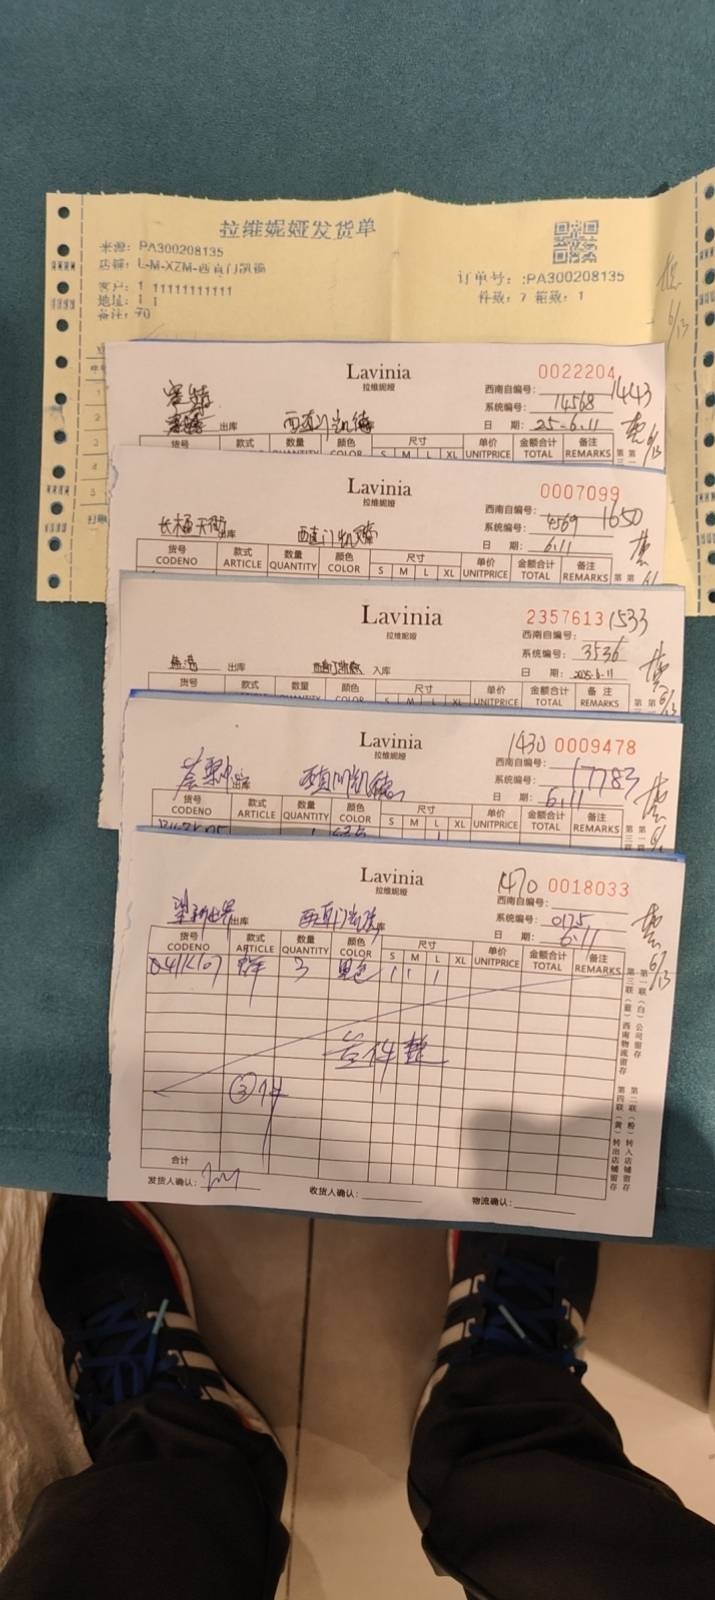 拉维妮娅发货单
来源: PA300208135
店铺: L-M-XZM-西直门凯德
订单号: :PA300208135
客户: 1 11111111111
件数: 7 箱数: 1
地址: 1 1
备注: 70
6/13
Lavinia
拉维妮娅
0022204
西南自编号: 1443
系统编号: 14568
出库 西直门凯德
日 期: 25-6.11
6/13
货号 款式 数量 颜色 尺寸 单价 金额合计 备注
QUANTITY COLOR S M L XL UNITPRICE TOTAL REMARKS
Lavinia
拉维妮娅
0007099
西南自编号: 1650
系统编号: 4569
长楹天街 出库 西直门凯德
日 期: 6.11
货号 款式 数量 颜色 尺寸 单价 金额合计 备注
CODENO ARTICLE QUANTITY COLOR S M L XL UNITPRICE TOTAL REMARKS
Lavinia
拉维妮娅
2357613 1533
西南自编号:
系统编号: 3536
出库 西直门凯德 入库
日 期: 2025.6.11
6/13
货号 款式 数量 颜色 尺寸 单价 金额合计 备注
ARTICLE QUANTITY COLOR S M L XL UNITPRICE TOTAL REMARKS
Lavinia
拉维妮娅
1430 0009478
西南自编号:
系统编号: 17783
荟聚 出库 西直门凯德
日 期: 6.11
货号 款式 数量 颜色 尺寸 单价 金额合计 备注
CODENO ARTICLE QUANTITY COLOR S M L XL UNITPRICE TOTAL REMARKS
Lavinia
拉维妮娅
1470 0018033
西南自编号:
系统编号: 0175
出库 西直门凯德 库
日 期: 6.11
6/13
货号 款式 数量 颜色 尺寸 单价 金额合计 备注
CODENO ARTICLE QUANTITY COLOR S M L XL UNITPRICE TOTAL REMARKS
3 黑色 1 1 1
叁件整
③件
合计
发货人确认: 收货人确认: 物流确认:
第一联(白)公司留存
第二联(粉)转入店铺留存
第三联(蓝)西南物流留存
第四联(黄)转出店铺留存